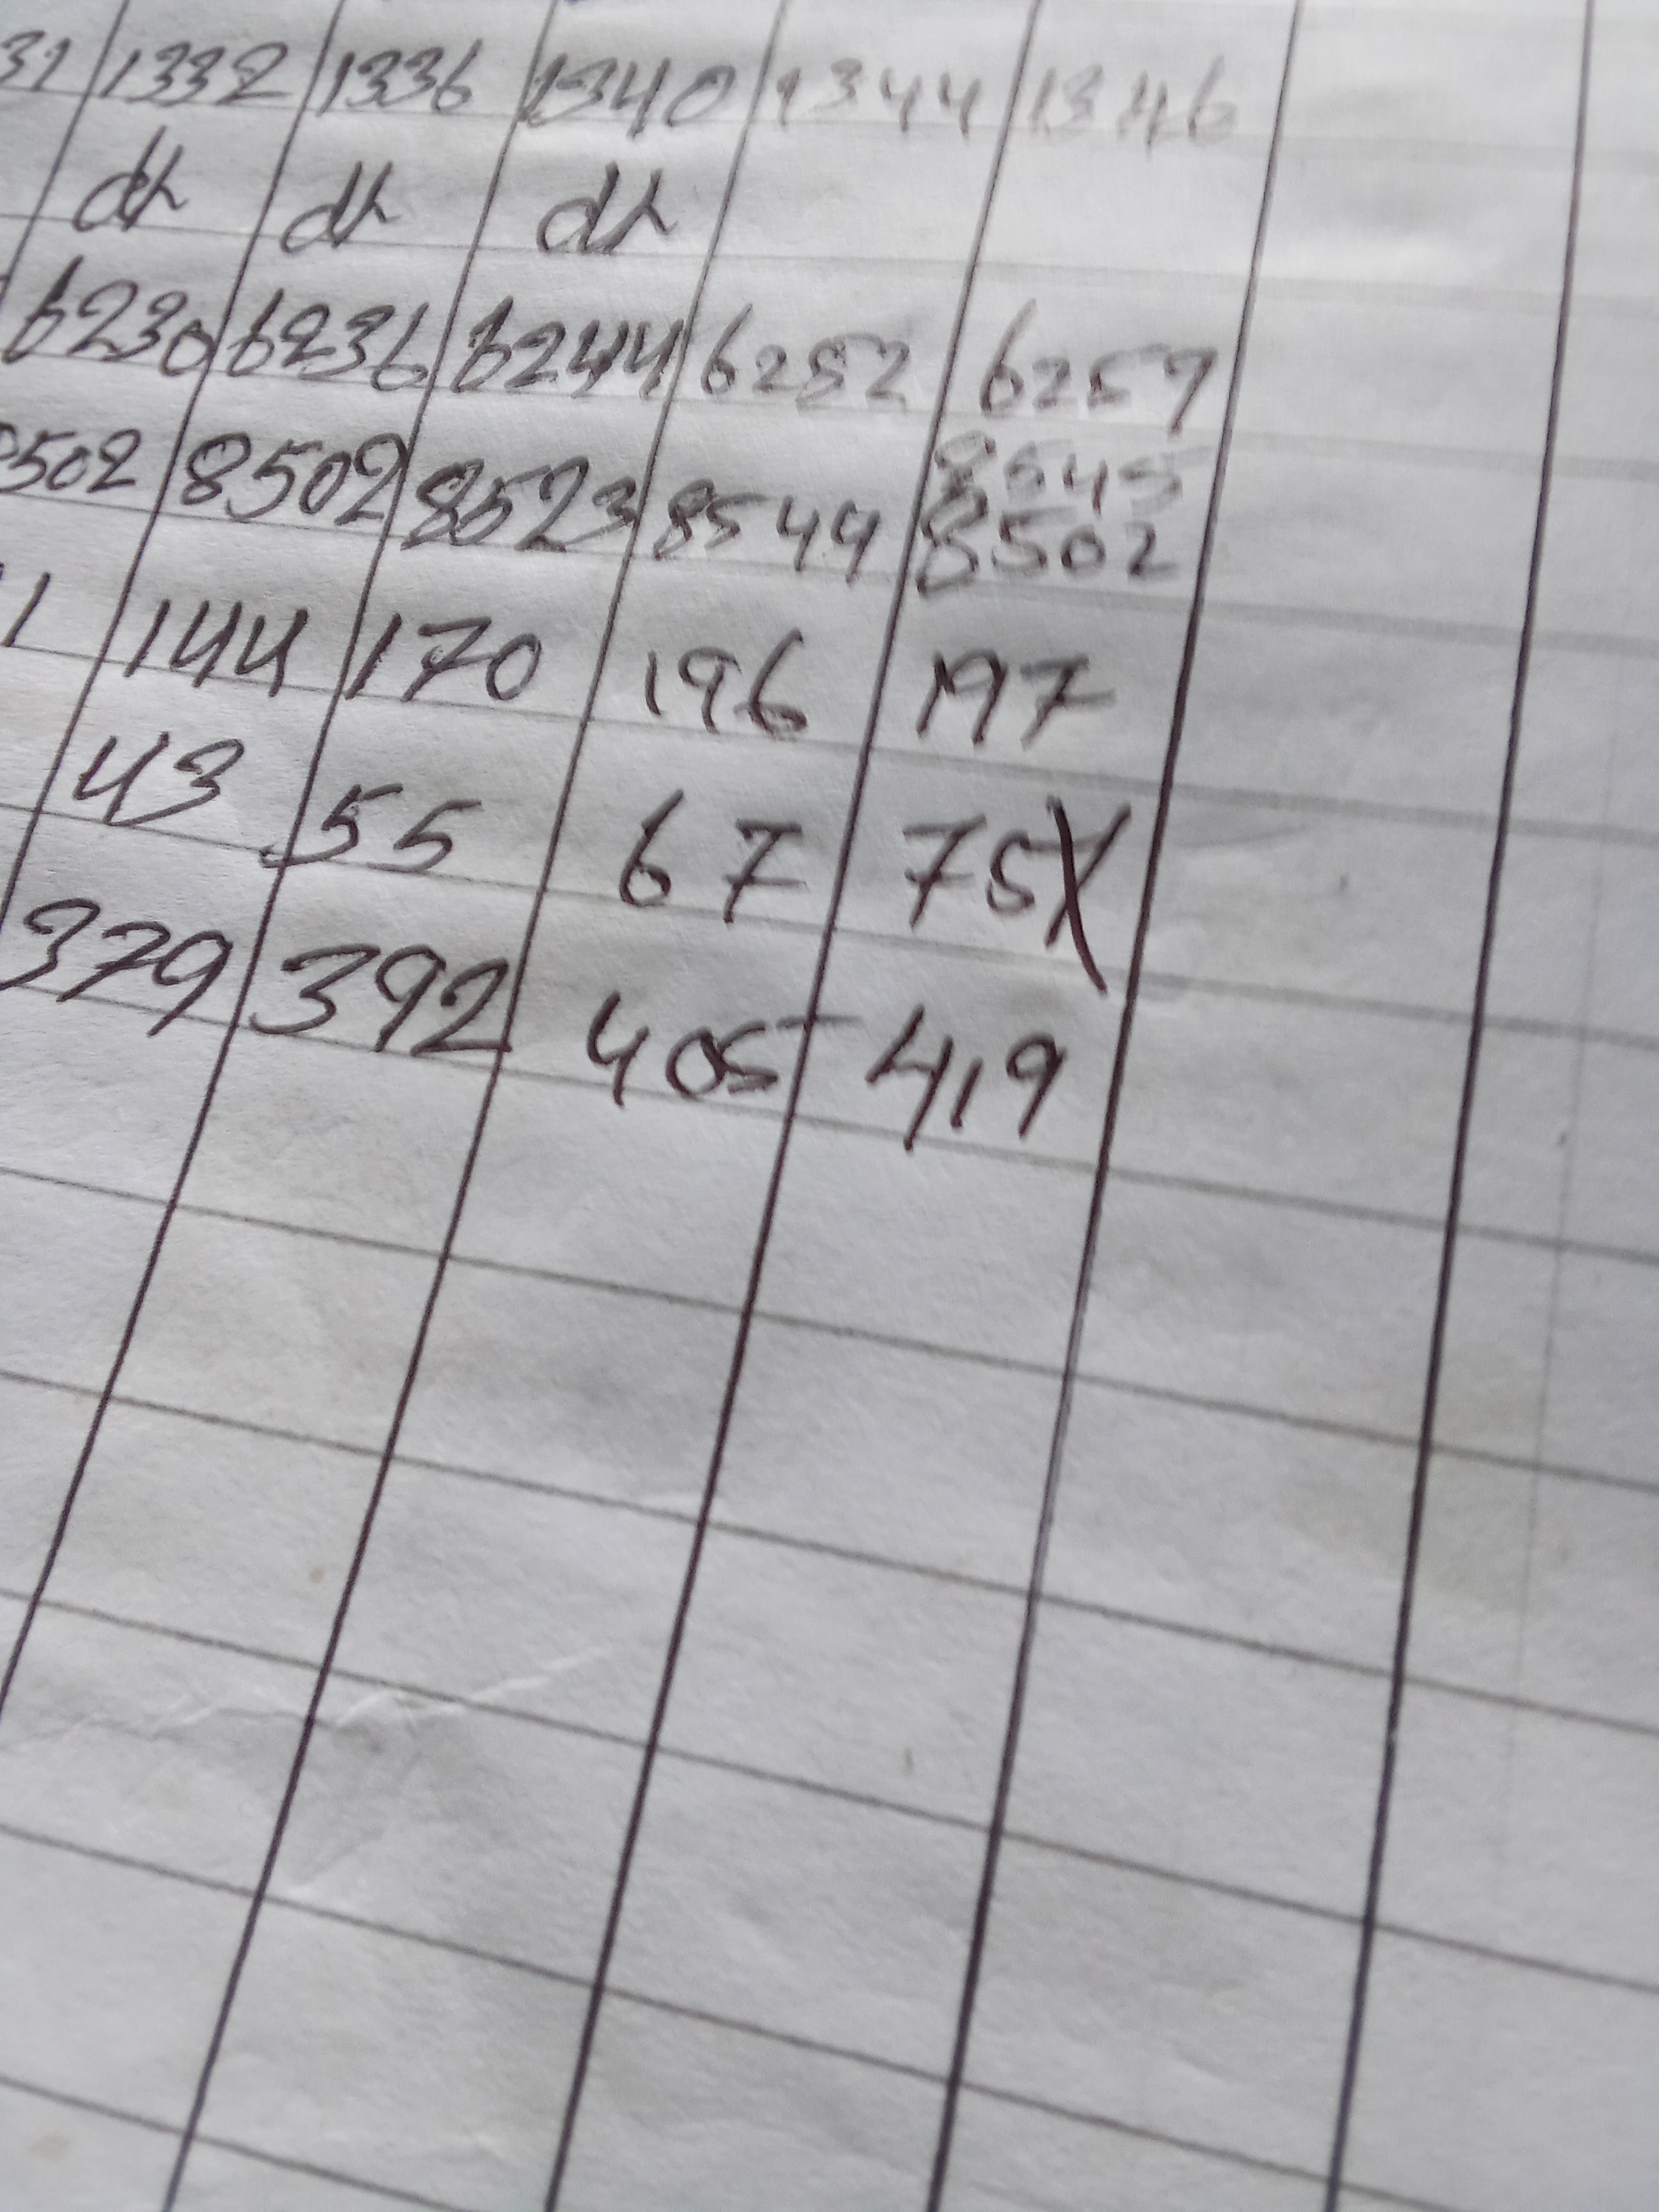 31 1332 1336 1340 1344 1346
dh dh dh
6230 6236 6244 6252 6257
8545
8502 8502 8523 8544 8502
1 144 170 196 197
43 55 67 75
379 392 405 419